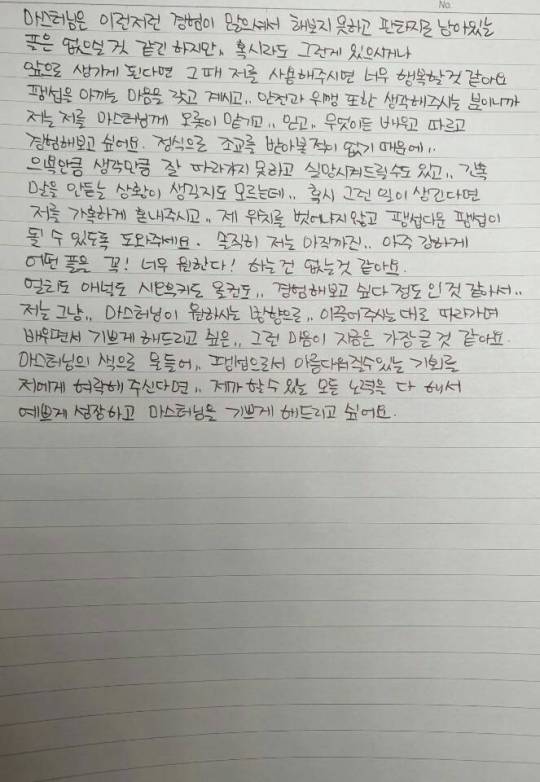 No.
마스터님은 이런저런 경험이 많으셔서 해보지 못하고 판타지로 남아있는
플은 없으실 것 같긴 하지만, 혹시라도 그런게 있으시거나
앞으로 생기게 된다면 그 때 저를 사용해주시면 너무 행복할것 같아요
팸섭을 아끼는 마음을 갖고 계시고.. 안전과 위생 또한 생각해주시는 분이니까
저는 저를 마스터님께 오롯이 맡기고.. 믿고.. 무엇이든 배우고 따르고
경험해보고 싶어요. 정식으로 조교를 받아본 적이 없기 때문에..
의욕만큼 생각만큼 잘 따라가지 못하고 실망시켜드릴수도 있고.. 간혹
말을 안듣는 상황이 생길지도 모르는데.. 혹시 그런 일이 생긴다면
저를 가혹하게 혼내주시고.. 제 위치를 벗어나지 않고 팸섭다운 팸섭이
될 수 있도록 도와주세요. 솔직히 저는 아직까진.. 아주 강하게
어떤 플을 꼭! 너무 원한다! 하는건 없는것 같아요.
얼치도 애널도 시오후키도 골든도.. 경험해보고 싶다 정도인 것 같아서..
저는 그냥.. 마스터님이 원하시는 방향으로.. 이끌어주시는대로 따라가며
배우면서 기쁘게 해드리고 싶은.. 그런 마음이 지금은 가장 큰것 같아요.
마스터님의 색으로 물들어.. 팸섭으로서 아름다워질수있는 기회를
저에게 허락해 주신다면.. 제가 할 수 있는 모든 노력을 다 해서
예쁘게 성장하고 마스터님을 기쁘게 해드리고 싶어요.